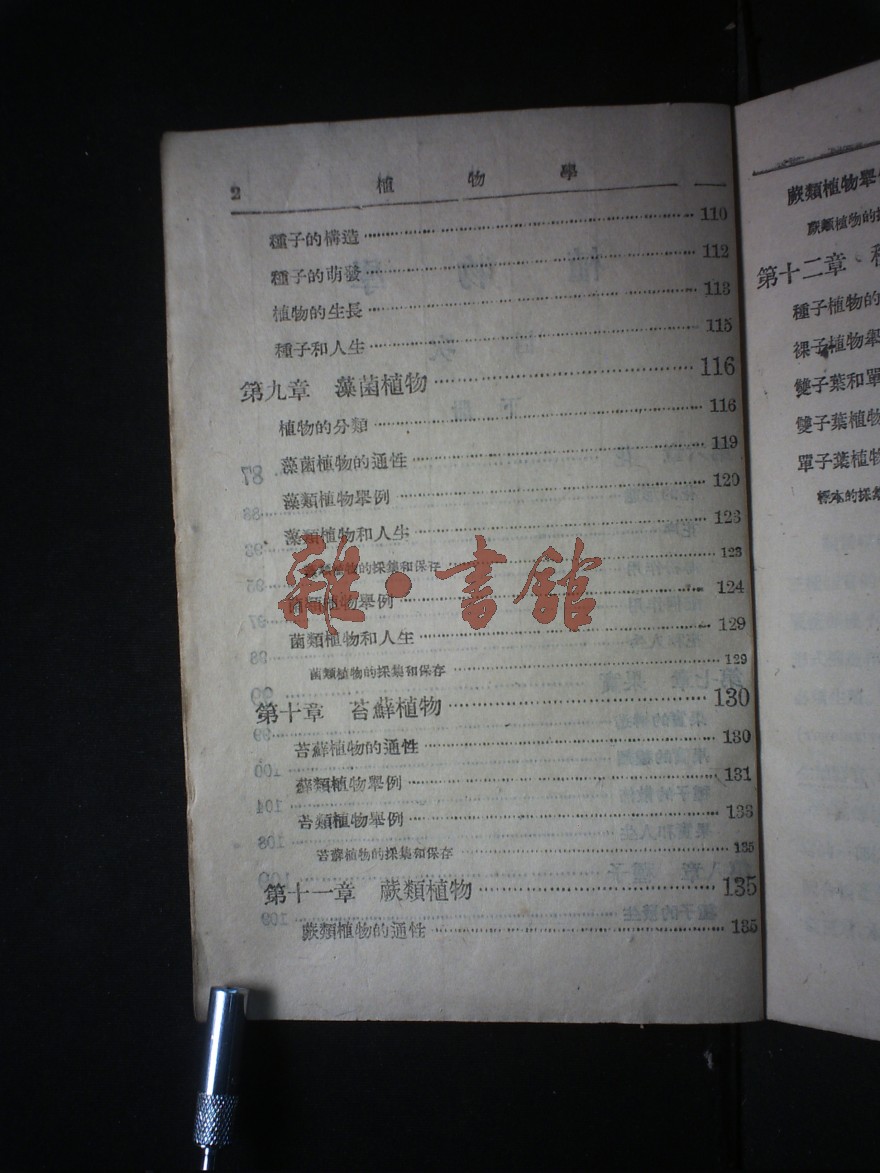 2 植物學
種子的構造 110
種子的萌發 112
植物的生長 113
種子和人生 115
第九章 藻菌植物 116
植物的分類 116
藻菌植物的通性 119
藻類植物舉例 120
藻類植物和人生 123
的採集和保存 123
菌類植物舉例 124
菌類植物和人生 129
菌類植物的採集和保存 129
第十章 苔蘚植物 130
苔蘚植物的通性 130
蘚類植物舉例 131
苔類植物舉例 133
苔蘚植物的採集和保存 135
第十一章 蕨類植物 135
蕨類植物的通性 135
雜·書館
蕨類植物舉
蕨類植物的
第十二章
種子植物的
裸子植物舉
雙子葉和單
雙子葉植物
單子葉植物
標本的採集